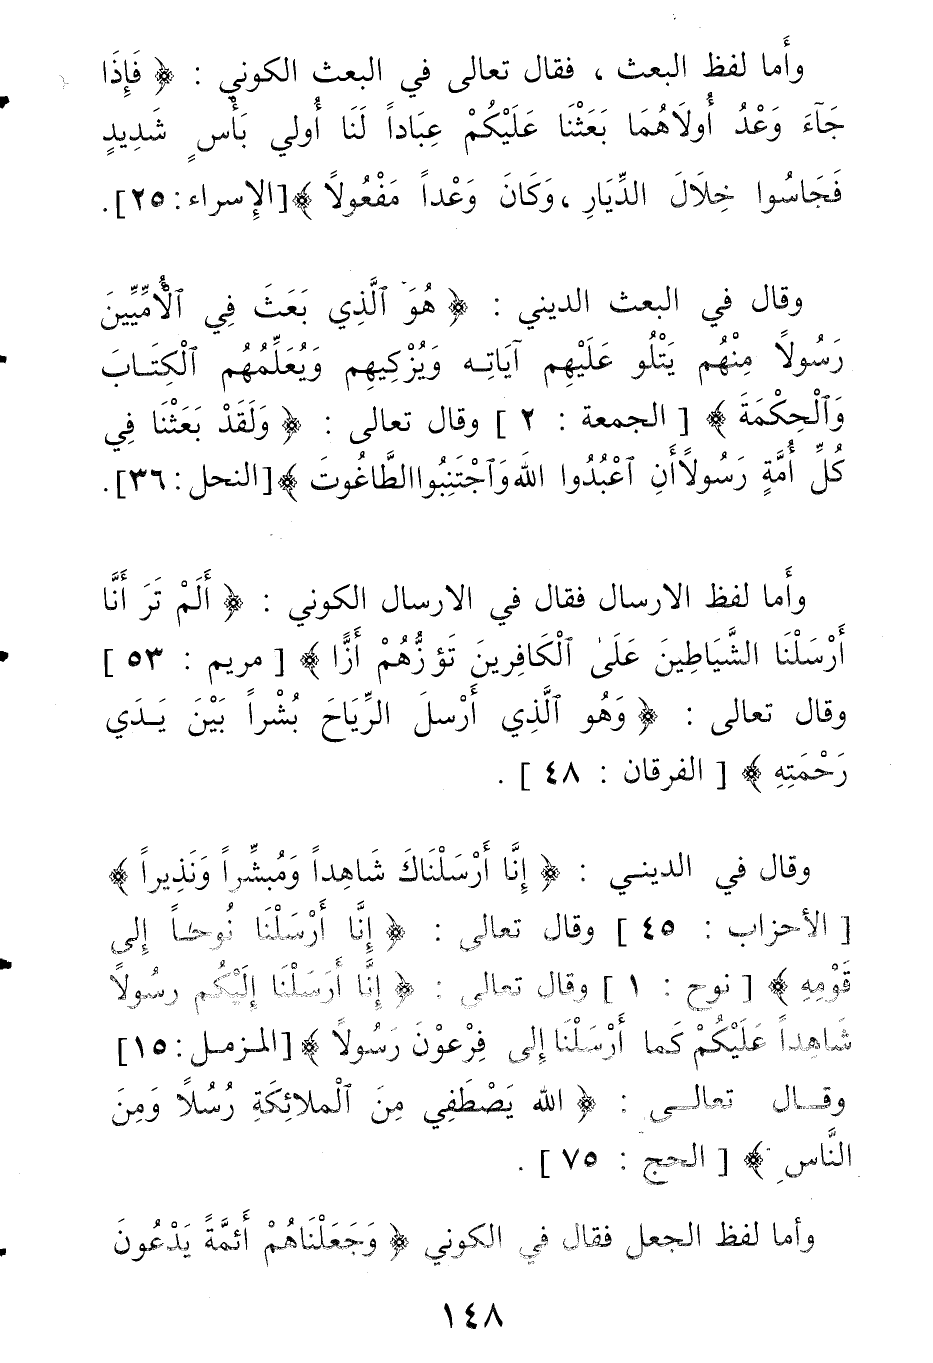 وأَما لفظ البعث ، فقال تعالى في البعث الكوني : ﴿ فَإِذَا
جَآءَ وَعْدُ أُولَاهُمَا بَعَثْنَا عَلَيْكُمْ عِبَاداً لَنَا أُولي بَأْسٍ شَدِيدٍ
فَجَاسُوا خِلَالَ الدِّيَارِ ، وَكَانَ وَعْداً مَفْعُولاً ﴾ [الإسراء : ٢٥] .
وقال في البعث الديني : ﴿ هُوَ ٱلَّذِي بَعَثَ فِي ٱلْأُمِّيِّينَ
رَسُولاً مِنْهُم يَتْلُو عَلَيْهِم آيَاتِـه وَيُزْكِيهِم وَيُعَلِّمُهُم ٱلْكِتَـابَ
وَٱلْحِكْمَةَ ﴾ [ الجمعة : ٢ ] وقال تعالى : ﴿ وَلَقَدْ بَعَثْنَا فِي
كُلِّ أُمَّةٍ رَسُولاً أَنِ ٱعْبُدُوا اللهَ وَٱجْتَنِبُوا الطَّاغُوتَ ﴾ [النحل : ٣٦] .
وأَما لفظ الارسال فقال في الارسال الكوني : ﴿ أَلَمْ تَرَ أَنَّا
أَرْسَلْنَا الشَّيَاطِينَ عَلَىٰ ٱلْكَافِرِينَ تَؤزُّهُمْ أَزًّا ﴾ [ مريم : ٥٣ ]
وقال تعالى : ﴿ وَهُو ٱلَّذِي أَرْسلَ الرِّيَاحَ بُشْراً بَيْنَ يَـدَي
رَحْمَتِهِ ﴾ [ الفرقان : ٤٨ ] .
وقال في الدينـي : ﴿ إِنَّا أَرْسَلْنَاكَ شَاهِداً وَمُبشِّراً وَنَذِيراً ﴾
[ الأحزاب : ٤٥ ] وقال تعالى : ﴿ إِنَّا أَرْسَلْنَا نُوحـاً إِلى
قَوْمِهِ ﴾ [ نوح : ١ ] وقال تعالى : ﴿ إِنَّا أَرَسَلْنَا إِلَيْكُم رسُولاً
شَاهِداً عَلَيْكُمْ كَما أَرْسَلْنَا إِلى فِرْعوْنَ رَسُولاً ﴾ [المـزمـل : ١٥]
وقـــال تعالـــى : ﴿ الله يَصْطَفِي مِنَ ٱلْملائِكَةِ رُسُلاً وَمِنَ
النَّاسِ ﴾ [ الحج : ٧٥ ] .
وأما لفظ الجعل فقال في الكوني ﴿ وَجَعَلْنَاهُمْ أَئمَّةً يَدْعُونَ
١٤٨